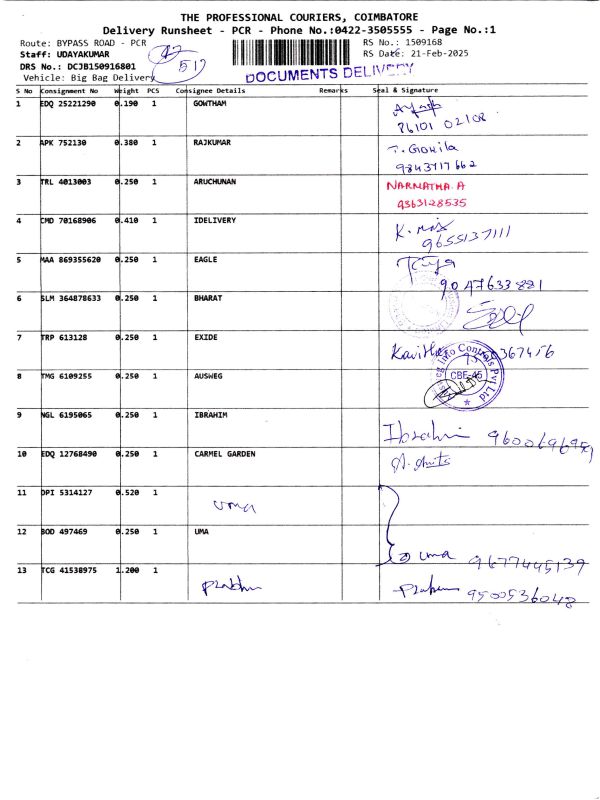 THE PROFESSIONAL COURIERS, COIMBATORE
Delivery Runsheet - PCR - Phone No.:0422-3505555 - Page No.:1
Route: BYPASS ROAD - PCR RS No.: 1509168
Staff: UDAYAKUMAR RS Date: 21-Feb-2025
DRS No.: DCJB150916801
Vehicle: Big Bag Delivery DOCUMENTS DELIVERY
S No Consignment No Weight PCS Consignee Details Remarks Seal & Signature
1 EDQ 25221290 0.190 1 GOWTHAM
86101 02108
2 APK 752130 0.380 1 RAJKUMAR T. Gokila
9843717662
3 TRL 4013003 0.250 1 ARUCHUNAN NARMATHA. A
9363128535
4 CMD 70168906 0.410 1 IDELIVERY
9655137111
5 MAA 869355620 0.250 1 EAGLE
9047633881
6 SLM 364878633 0.250 1 BHARAT
7 TRP 613128 0.250 1 EXIDE Kavitha 367456
8 TMG 6109255 0.250 1 AUSWEG Info Controls Pvt Ltd CBE-45
9 NGL 6195065 0.250 1 IBRAHIM Ibrahim
10 EDQ 12768490 0.250 1 CARMEL GARDEN
11 DPI 5314127 0.520 1 uma
12 BOD 497469 0.250 1 UMA uma 9677445139
13 TCG 41538975 1.200 1 Prabhu 9500536048